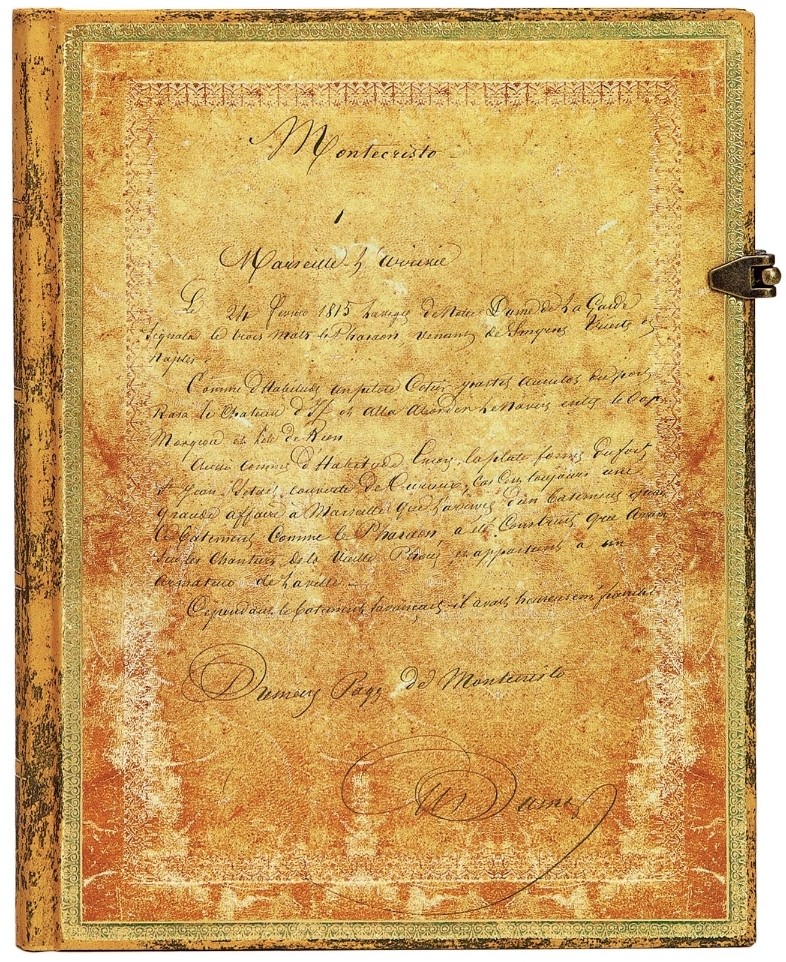 Montecristo
1
Marseille – L'arrivée
Le 24 février 1815 la vigie de Notre Dame de la Garde
Signala le trois mats le Pharaon venant de Smyrne Trieste et
Naples.
Comme d'habitude un pilote Cotier partit aussitot du port
Rasa le Chateau d'If et alla aborder le navire entre le Cap
Morgiou et l'ile de Rion
Aussi comme d'habitude la plate forme du fort
St Jean s'etait couverte de Curieux, car c'est toujours une
grande affaire à Marseille que l'arrivée d'un batiment quand
ce batiment Comme le Pharaon a été Construit gréé Arrimé
Sur les Chantiers de la Vieille Phocée et appartient a un
armateur de la ville –
Cependant le batiment s'avançait – il avait heureusement franchi
Premiere Page de Montecristo
Alex Dumas